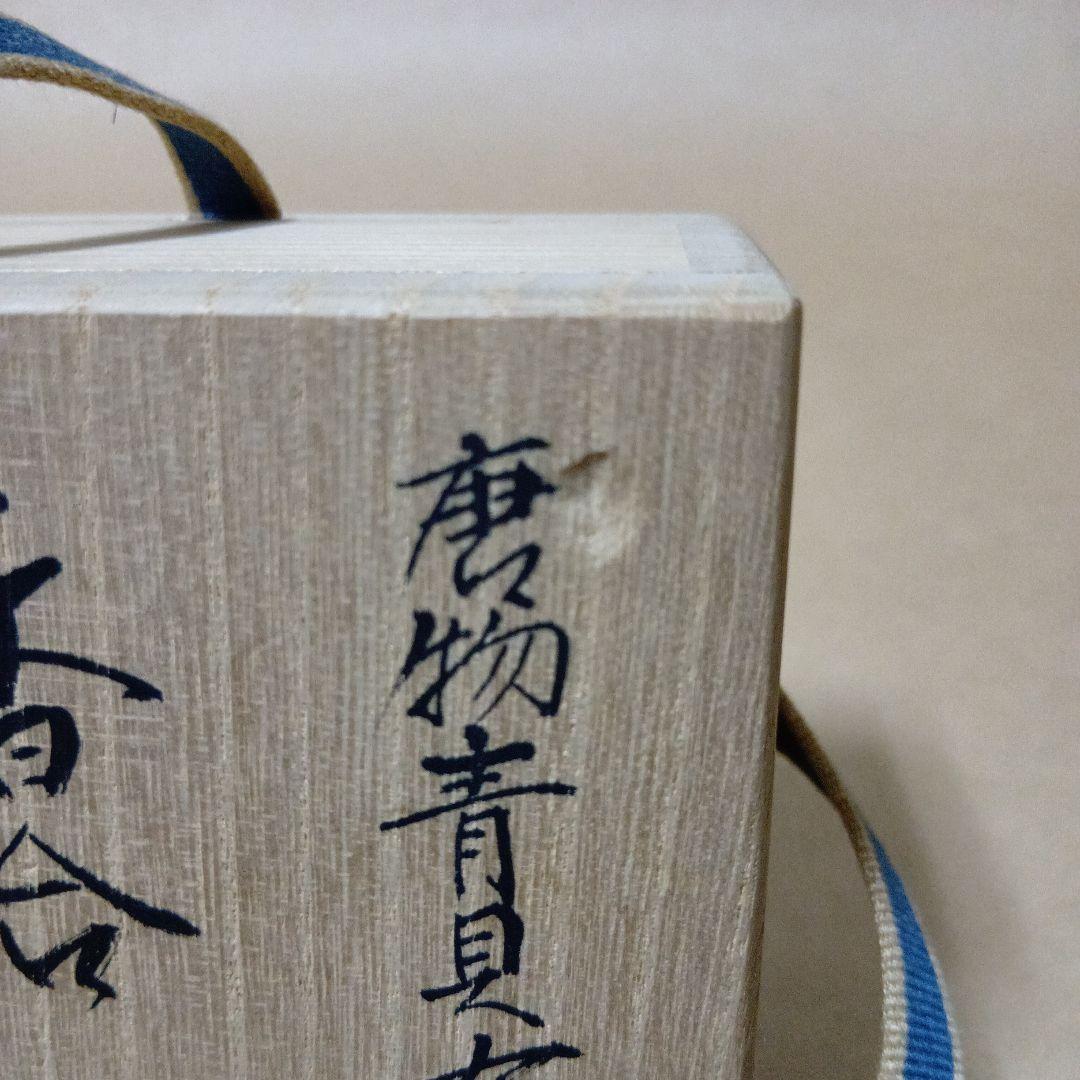 唐物青貝
香合